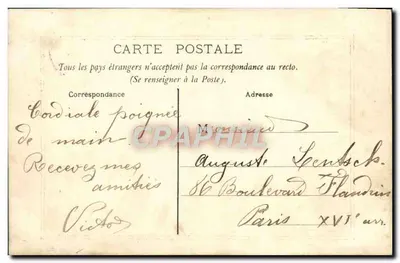 CARTE POSTALE
Tous les pays étrangers n'acceptent pas la correspondance au recto.
(Se renseigner à la Poste).
Correspondance
Adresse
Cordiale poignée
de main
Recevez mes
amitiés
Victor
Monsieur
Auguste Lentsch
86 Boulevard Flandrin
Paris XVIe arr.
PHILATELIE